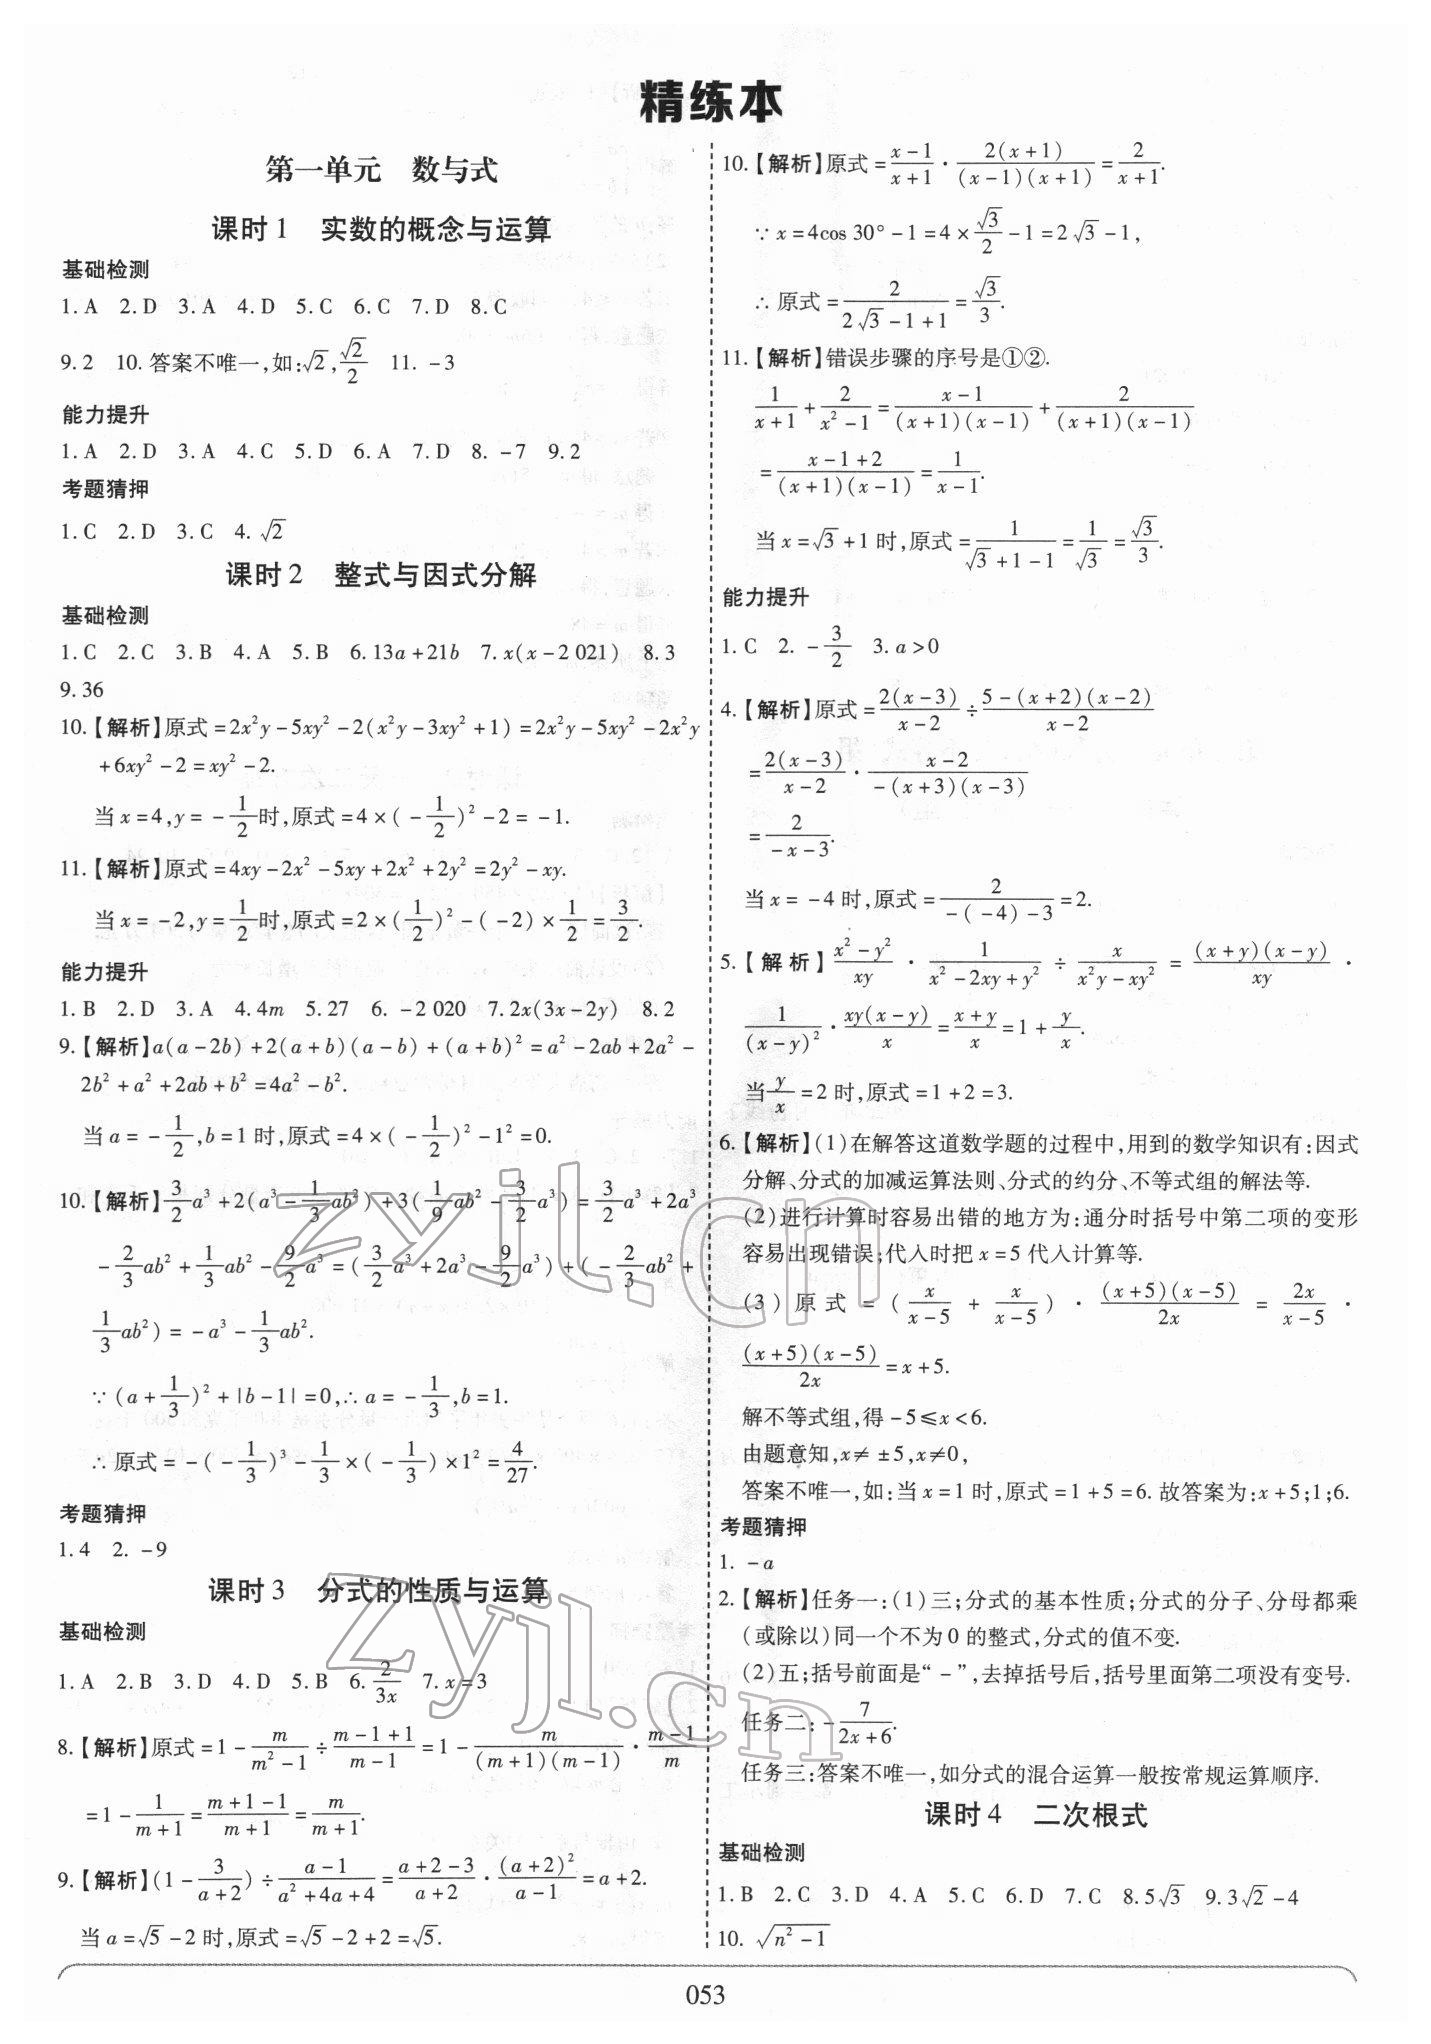 精练本
第一单元 数与式
课时1 实数的概念与运算
基础检测
1. A 2. D 3. A 4. D 5. C 6. C 7. D 8. C
9. 2 10. 答案不唯一,如:√2,√2/2 11. -3
能力提升
1. A 2. D 3. A 4. C 5. D 6. A 7. D 8. -7 9. 2
考题猜押
1. C 2. D 3. C 4. √2
课时2 整式与因式分解
基础检测
1. C 2. C 3. B 4. A 5. B 6. 13a+21b 7. x(x-2 021) 8. 3
9. 36
10.【解析】原式=2x²y-5xy²-2(x²y-3xy²+1)=2x²y-5xy²-2x²y
+6xy²-2=xy²-2.
当x=4,y=-1/2时,原式=4×(-1/2)²-2=-1.
11.【解析】原式=4xy-2x²-5xy+2x²+2y²=2y²-xy.
当x=-2,y=1/2时,原式=2×(1/2)²-(-2)×1/2=3/2.
能力提升
1. B 2. D 3. A 4. 4m 5. 27 6. -2 020 7. 2x(3x-2y) 8. 2
9.【解析】a(a-2b)+2(a+b)(a-b)+(a+b)²=a²-2ab+2a²-
2b²+a²+2ab+b²=4a²-b².
当a=-1/2,b=1时,原式=4×(-1/2)²-1²=0.
10.【解析】3/2a³+2(a³-1/3ab²)+3(1/9ab²-3/2a³)=3/2a³+2a³
-2/3ab²+1/3ab²-9/2a³=(3/2a³+2a³-9/2a³)+(-2/3ab²+
1/3ab²)=-a³-1/3ab².
∵(a+1/3)²+|b-1|=0,∴a=-1/3,b=1.
∴原式=-(-1/3)³-1/3×(-1/3)×1²=4/27.
考题猜押
1. 4 2. -9
课时3 分式的性质与运算
基础检测
1. A 2. B 3. D 4. D 5. B 6. 2/3x 7. x=3
8.【解析】原式=1-m/(m²-1)÷(m-1+1)/(m-1)=1-m/((m+1)(m-1))·(m-1)/m
=1-1/(m+1)=(m+1-1)/(m+1)=m/(m+1).
9.【解析】(1-3/(a+2))÷(a-1)/(a²+4a+4)=(a+2-3)/(a+2)·(a+2)²/(a-1)=a+2.
当a=√5-2时,原式=√5-2+2=√5.
10.【解析】原式=(x-1)/(x+1)·2(x+1)/((x-1)(x+1))=2/(x+1).
∵x=4cos 30°-1=4×√3/2-1=2√3-1,
∴原式=2/(2√3-1+1)=√3/3.
11.【解析】错误步骤的序号是①②.
1/(x+1)+2/(x²-1)=(x-1)/((x+1)(x-1))+2/((x+1)(x-1))
=(x-1+2)/((x+1)(x-1))=1/(x-1).
当x=√3+1时,原式=1/(√3+1-1)=1/√3=√3/3.
能力提升
1. C 2. -3/2 3. a>0
4.【解析】原式=2(x-3)/(x-2)÷(5-(x+2)(x-2))/(x-2)
=2(x-3)/(x-2)·(x-2)/(-(x+3)(x-3))
=2/(-x-3).
当x=-4时,原式=2/(-(-4)-3)=2.
5.【解析】(x²-y²)/xy·1/(x²-2xy+y²)÷x/(x²y-xy²)=(x+y)(x-y)/xy·
1/(x-y)²·xy(x-y)/x=(x+y)/x=1+y/x.
当y/x=2时,原式=1+2=3.
6.【解析】(1)在解答这道数学题的过程中,用到的数学知识有:因式
分解、分式的加减运算法则、分式的约分、不等式组的解法等.
(2)进行计算时容易出错的地方为:通分时括号中第二项的变形
容易出现错误;代入时把x=5代入计算等.
(3)原式=(x/(x-5)+x/(x-5))·(x+5)(x-5)/2x=2x/(x-5)·
(x+5)(x-5)/2x=x+5.
解不等式组,得-5≤x<6.
由题意知,x≠±5,x≠0,
答案不唯一,如:当x=1时,原式=1+5=6.故答案为:x+5;1;6.
考题猜押
1. -a
2.【解析】任务一:(1)三;分式的基本性质;分式的分子、分母都乘
(或除以)同一个不为0的整式,分式的值不变.
(2)五;括号前面是“-”,去掉括号后,括号里面第二项没有变号.
任务二:-7/(2x+6).
任务三:答案不唯一,如分式的混合运算一般按常规运算顺序.
课时4 二次根式
基础检测
1. B 2. C 3. D 4. A 5. C 6. D 7. C 8. 5√3 9. 3√2-4
10. √(n²-1)
053
zyjl.cn
zyjl.cn